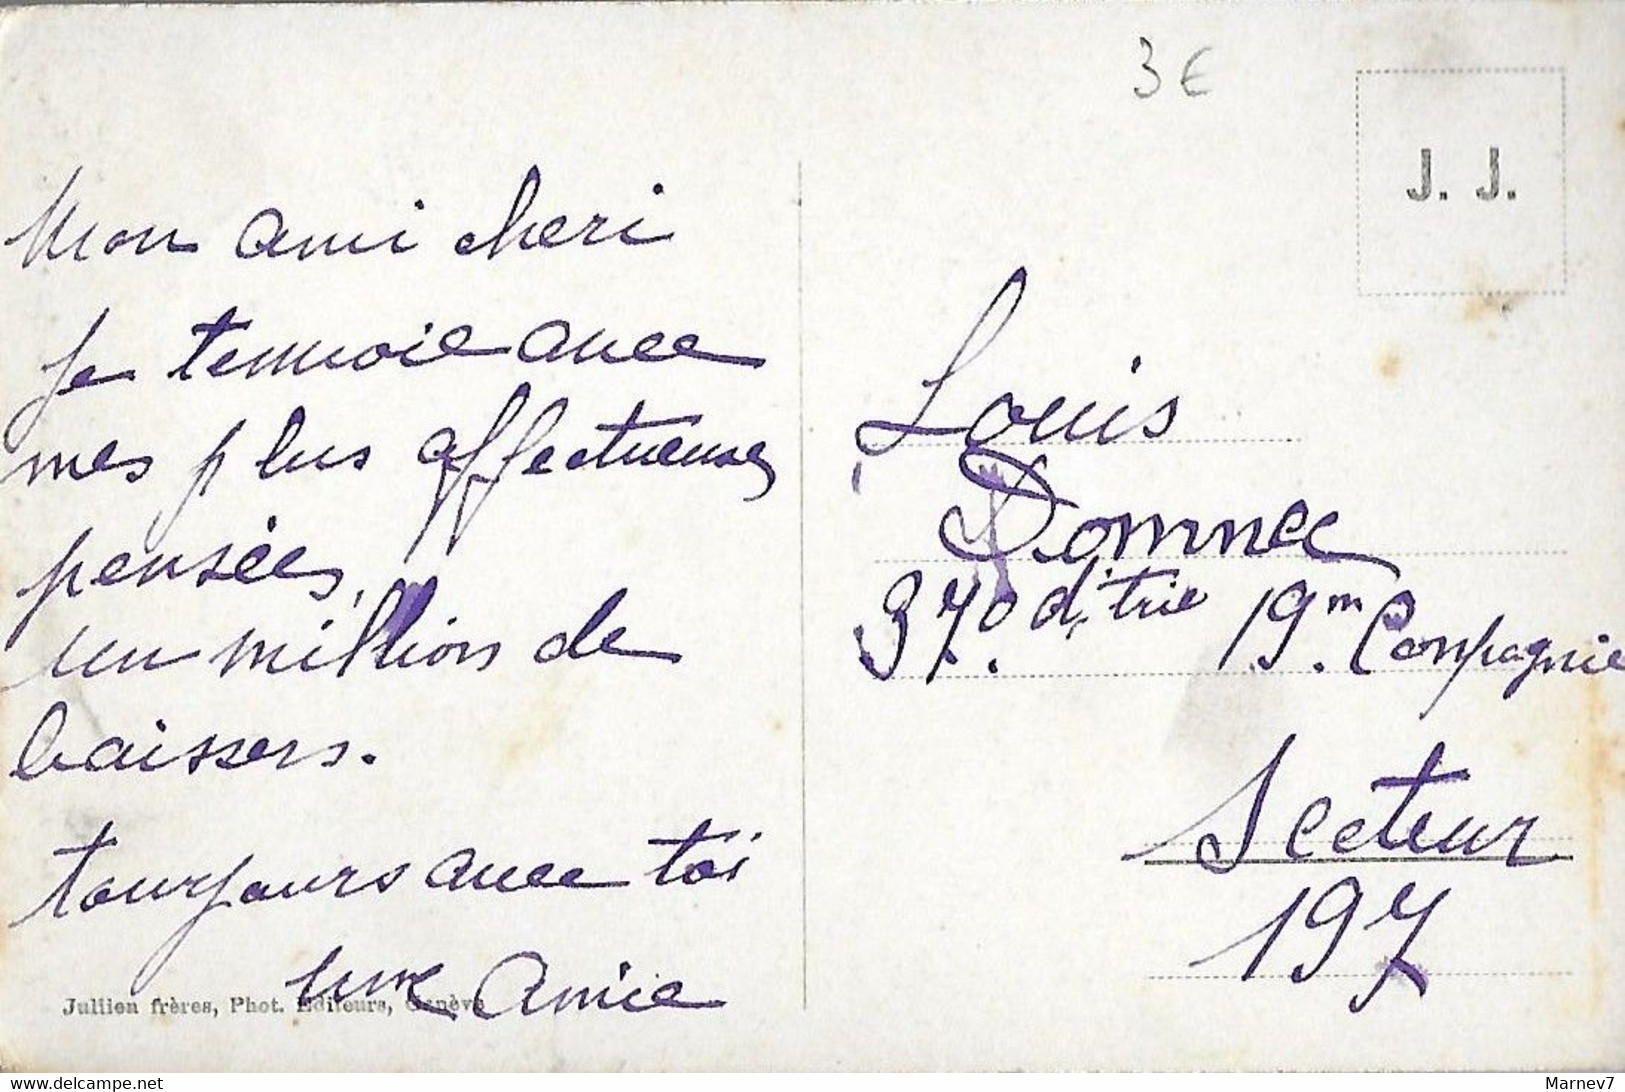 3 €
J. J.
Mon ami cheri
je tenvoie avec
mes plus affectueuses
pensées,
un million de
baisers.
toujours avec toi
une Amie
Jullien frères, Phot. Editeurs, Genève
Louis
Domnec
370 d'.trie 19.m Compagnie
Secteur
197
delcampe.net
Marnev7